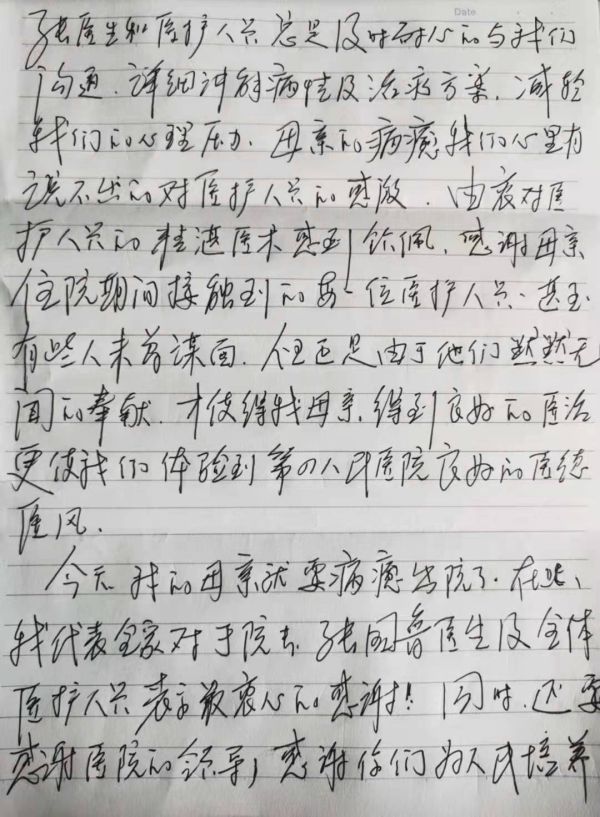 Date
张医生和医护人员总是及时耐心的与我们
沟通、详细讲解病情及治疗方案,减轻
我们的心理压力。母亲的病愈我们心里有
说不出的对医护人员的感激。由衷对医
护人员的精湛医术感到钦佩,感谢母亲
住院期间接触到的每一位医护人员、甚至
有些人未曾谋面、但正是由于他们默默无
闻的奉献、才使得我母亲得到良好的医治
更使我们体验到第四人民医院良好的医德
医风。
今天我的母亲就要病愈出院了。在此、
我代表全家对于院长、张国普医生及全体
医护人员表示最衷心的感谢!同时,还要
感谢医院的领导,感谢你们为人民培养